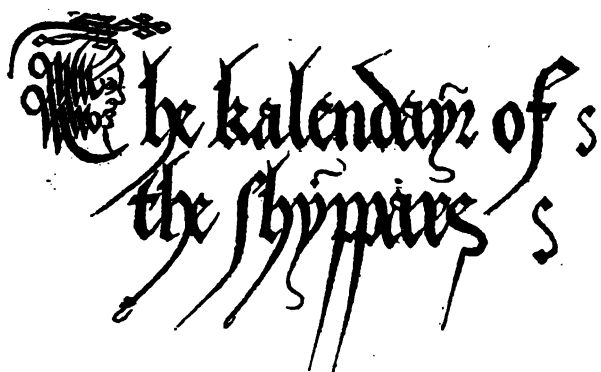 The kalendayr of
the ſhyppars